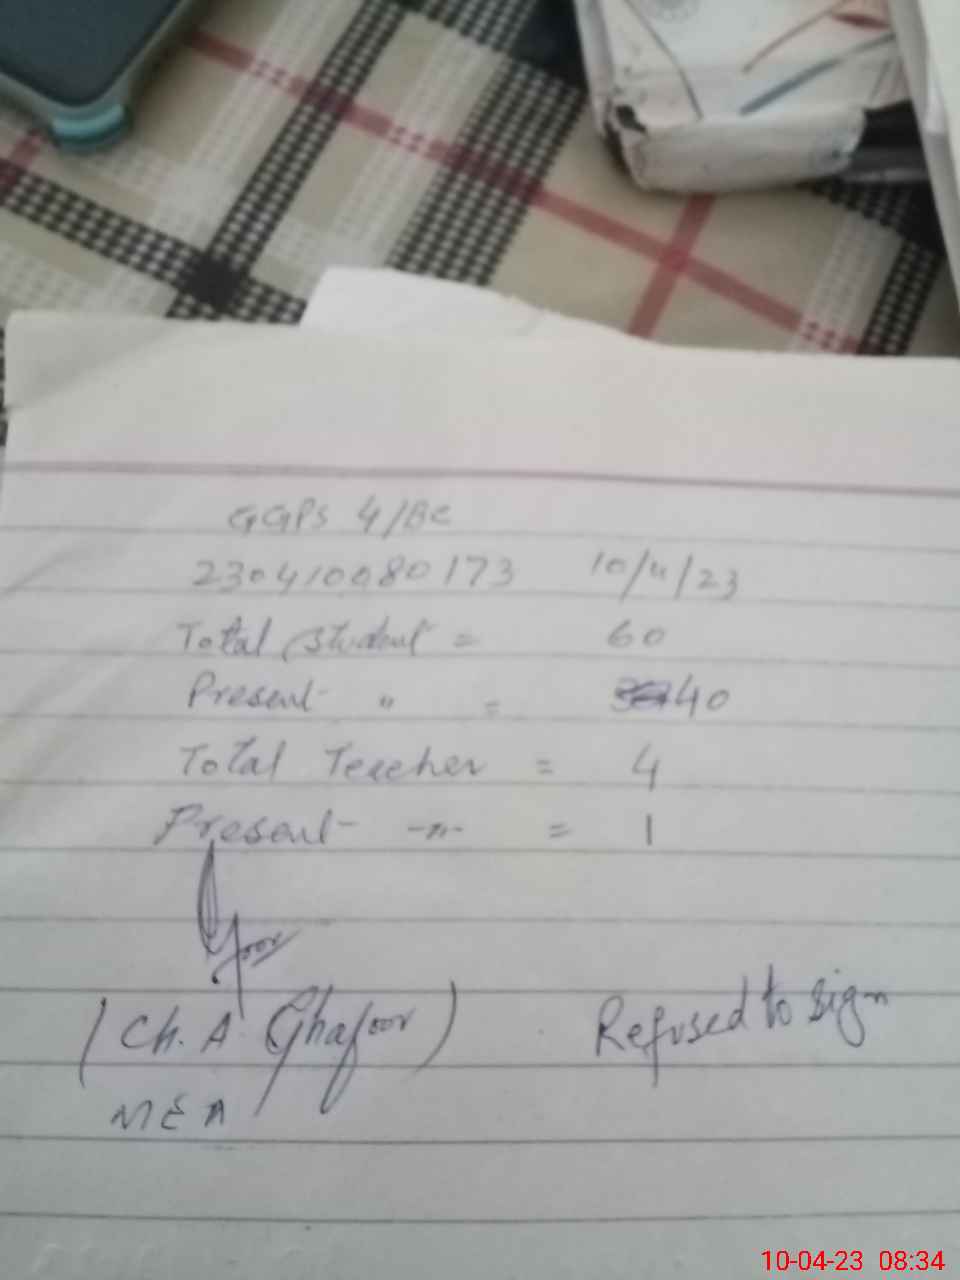 GGPS 4/BC
230410080173 10/4/23
Total Student = 60
Present " = 40
Total Teacher = 4
Present -"- = 1
(Ch. A. Ghafoor) Refused to sign
MEA
10-04-23 08:34